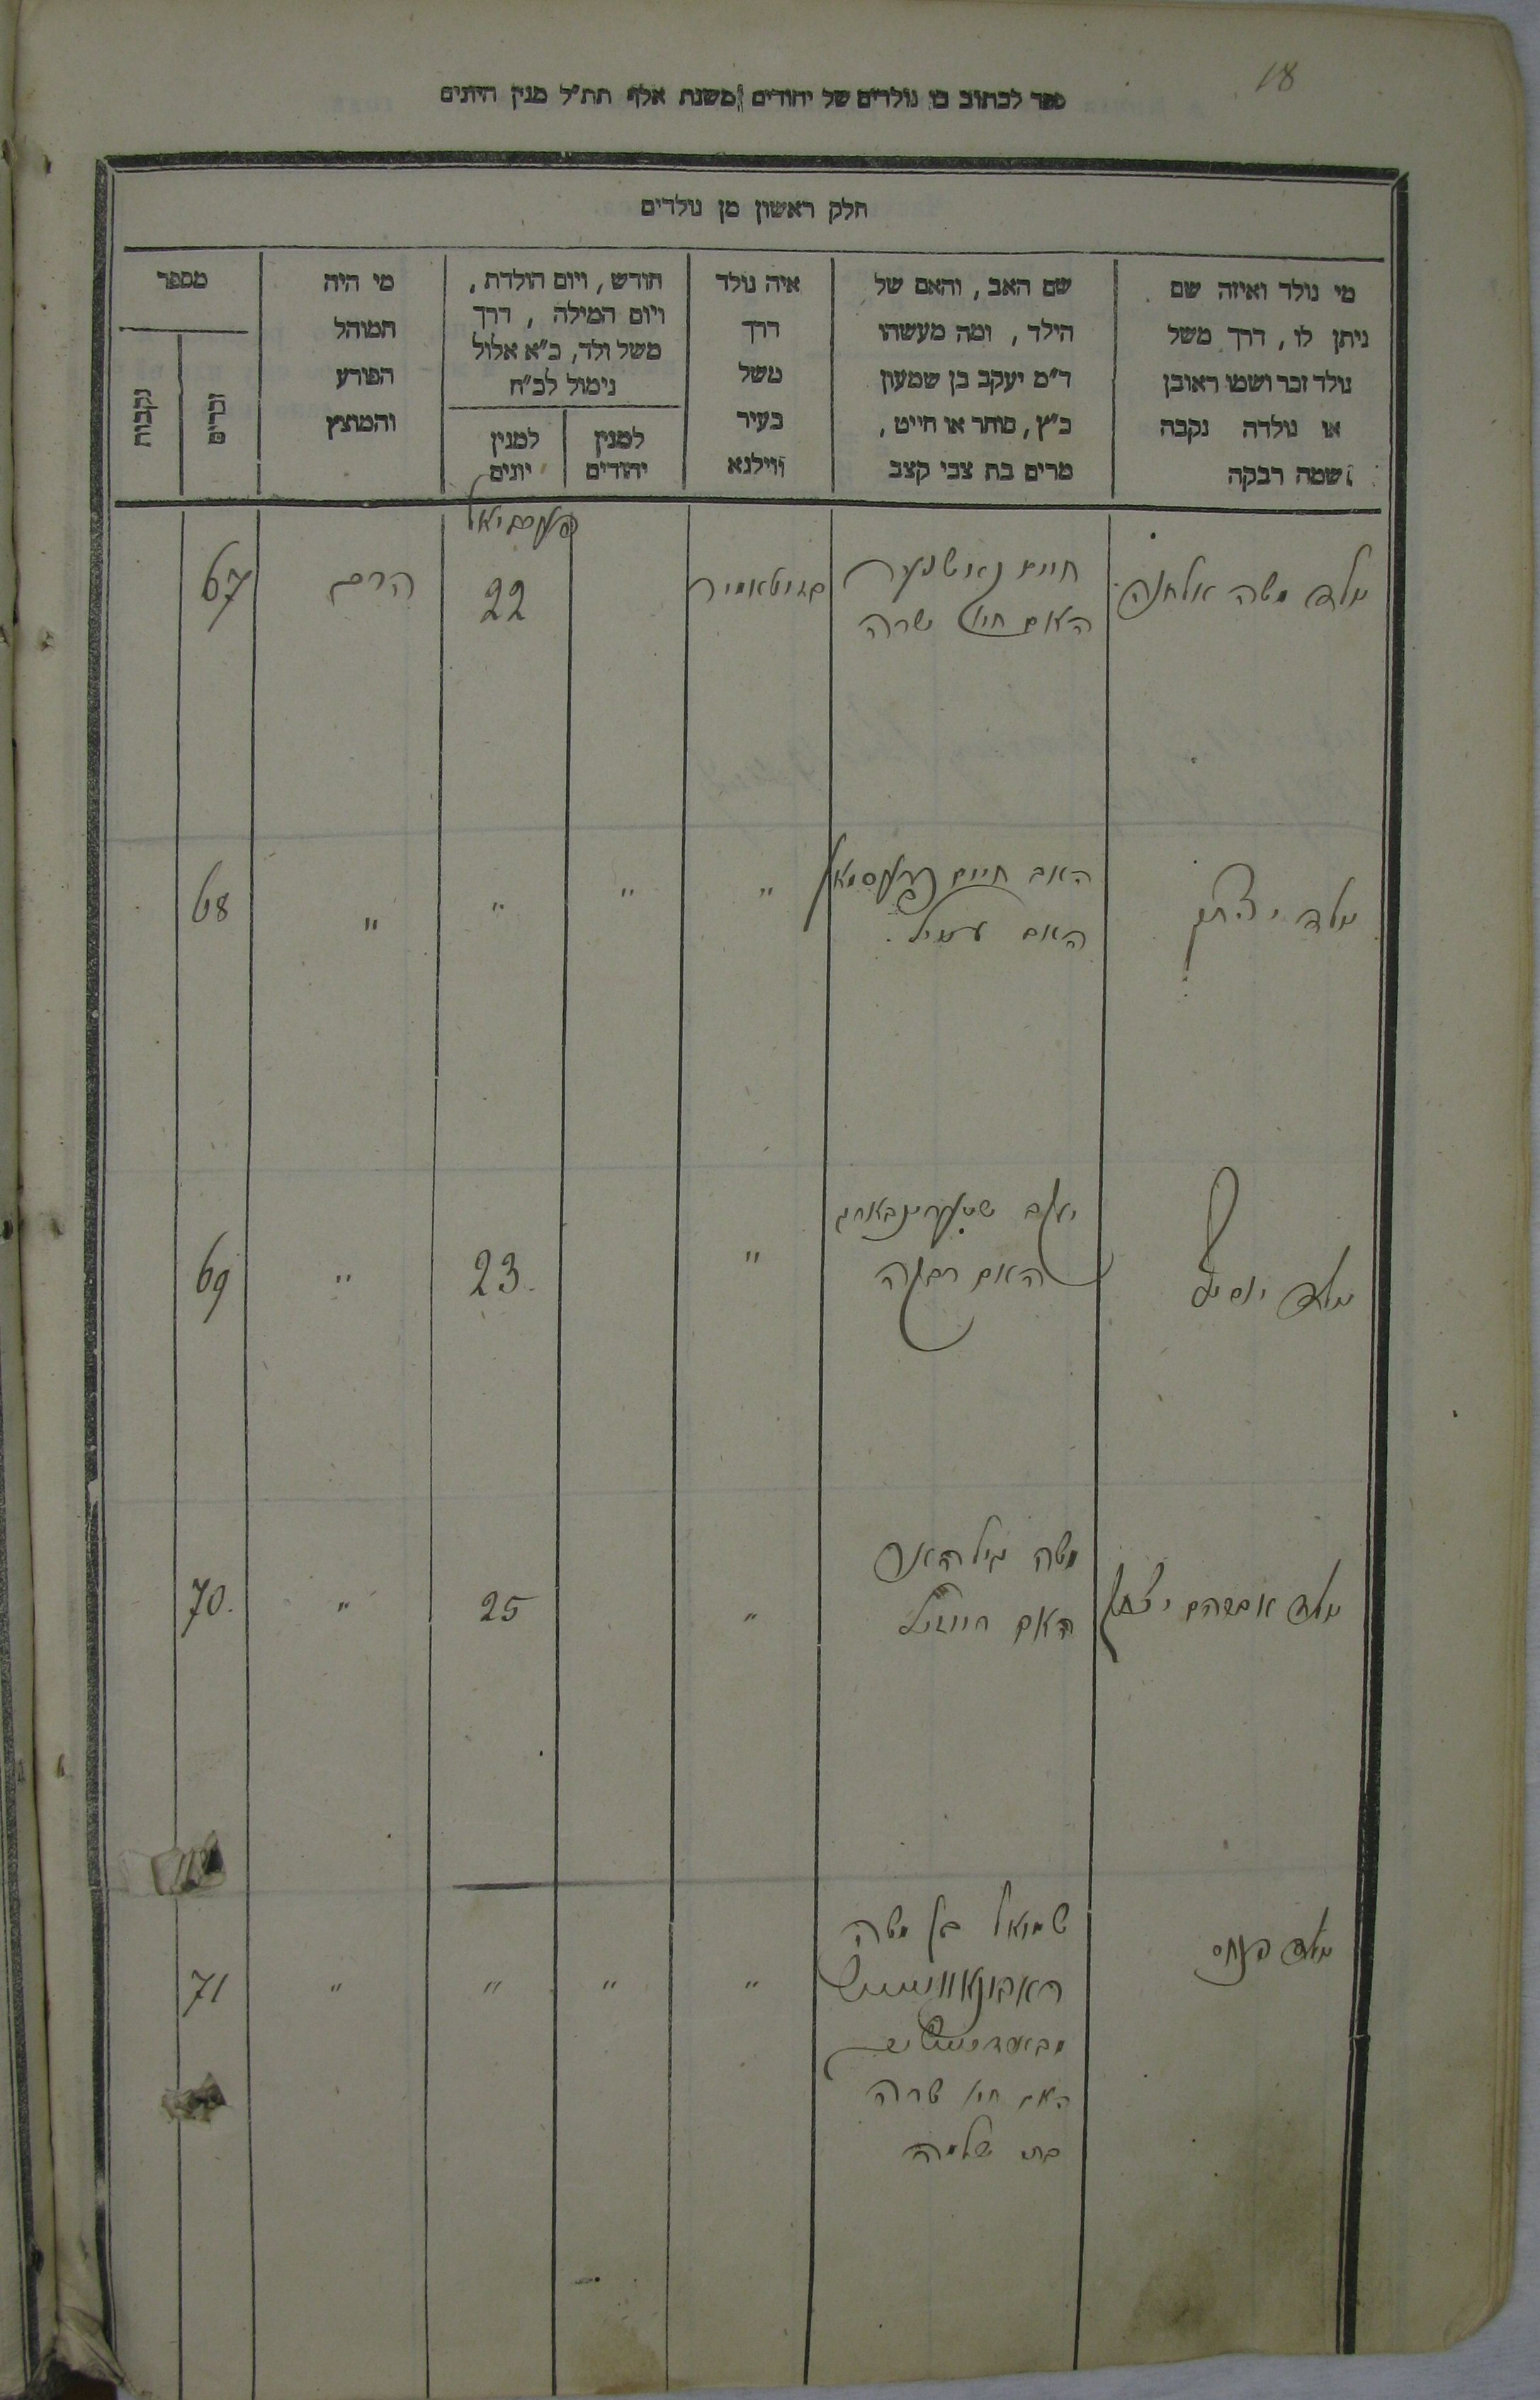 18
ספר לכתוב בו נולדים של יהודים משנת אלף תת״ל מנין היונים
חלק ראשון מן נולדים
מי נולד ואיזה שם
ניתן לו, דרך משל
נולד זכר ושמו ראובן
או נולדה נקבה
ושמה רבקה
שם האב, והאם של
הילד, ומה מעשהו
ד״מ יעקב בן שמעון
כ״ץ, סוחר או חייט,
מרים בת צבי קצב
איה נולד
דרך
משל
בעיר
ווילנא
חודש, ויום הולדת,
ויום המילה, דרך
משל ולד, כ״א אלול
נימול לכ״ח
למנין
יהודים
למנין
יונים
מי היה
המוהל
הפורע
והמוצץ
מספר
זכרים
נקבות
נולד משה אלחנן
חיים
האם חיה שרה
זיטאמיר
22
הרב
67
נולד יצחק
האב חיים
האם
"
"
"
"
68
נולד יוסף
יעקב שטערינבארג
האם רבקה
"
23.
"
69
נולד אברהם יצחק
משה
האם רייזיל
"
25
"
70.
נולד פנחס
שמואל בן משה
האם חיה שרה
בת שלמה
"
"
"
"
71